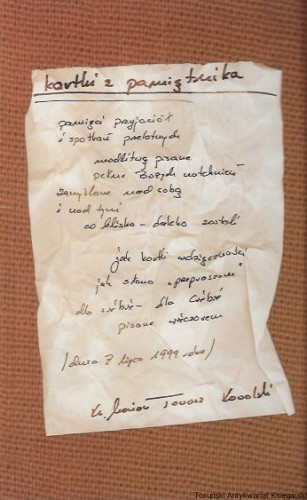 kartki z pamiętnika
pamięci przyjaciół
i spotkań przelotnych
modlitwą pisane
pełne Bożych natchnień
zamyślone nad sobą
i nad tymi
co blisko - daleko zostali
jak kartki wdzięczności
jak słowa "przepraszam"
dla siebie - dla Ciebie
pisane wieczorem
/ dnia 7 lipca 1999 roku /
Ks. Marian Tomasz Kowalski
Toruński Antykwariat Księgarski